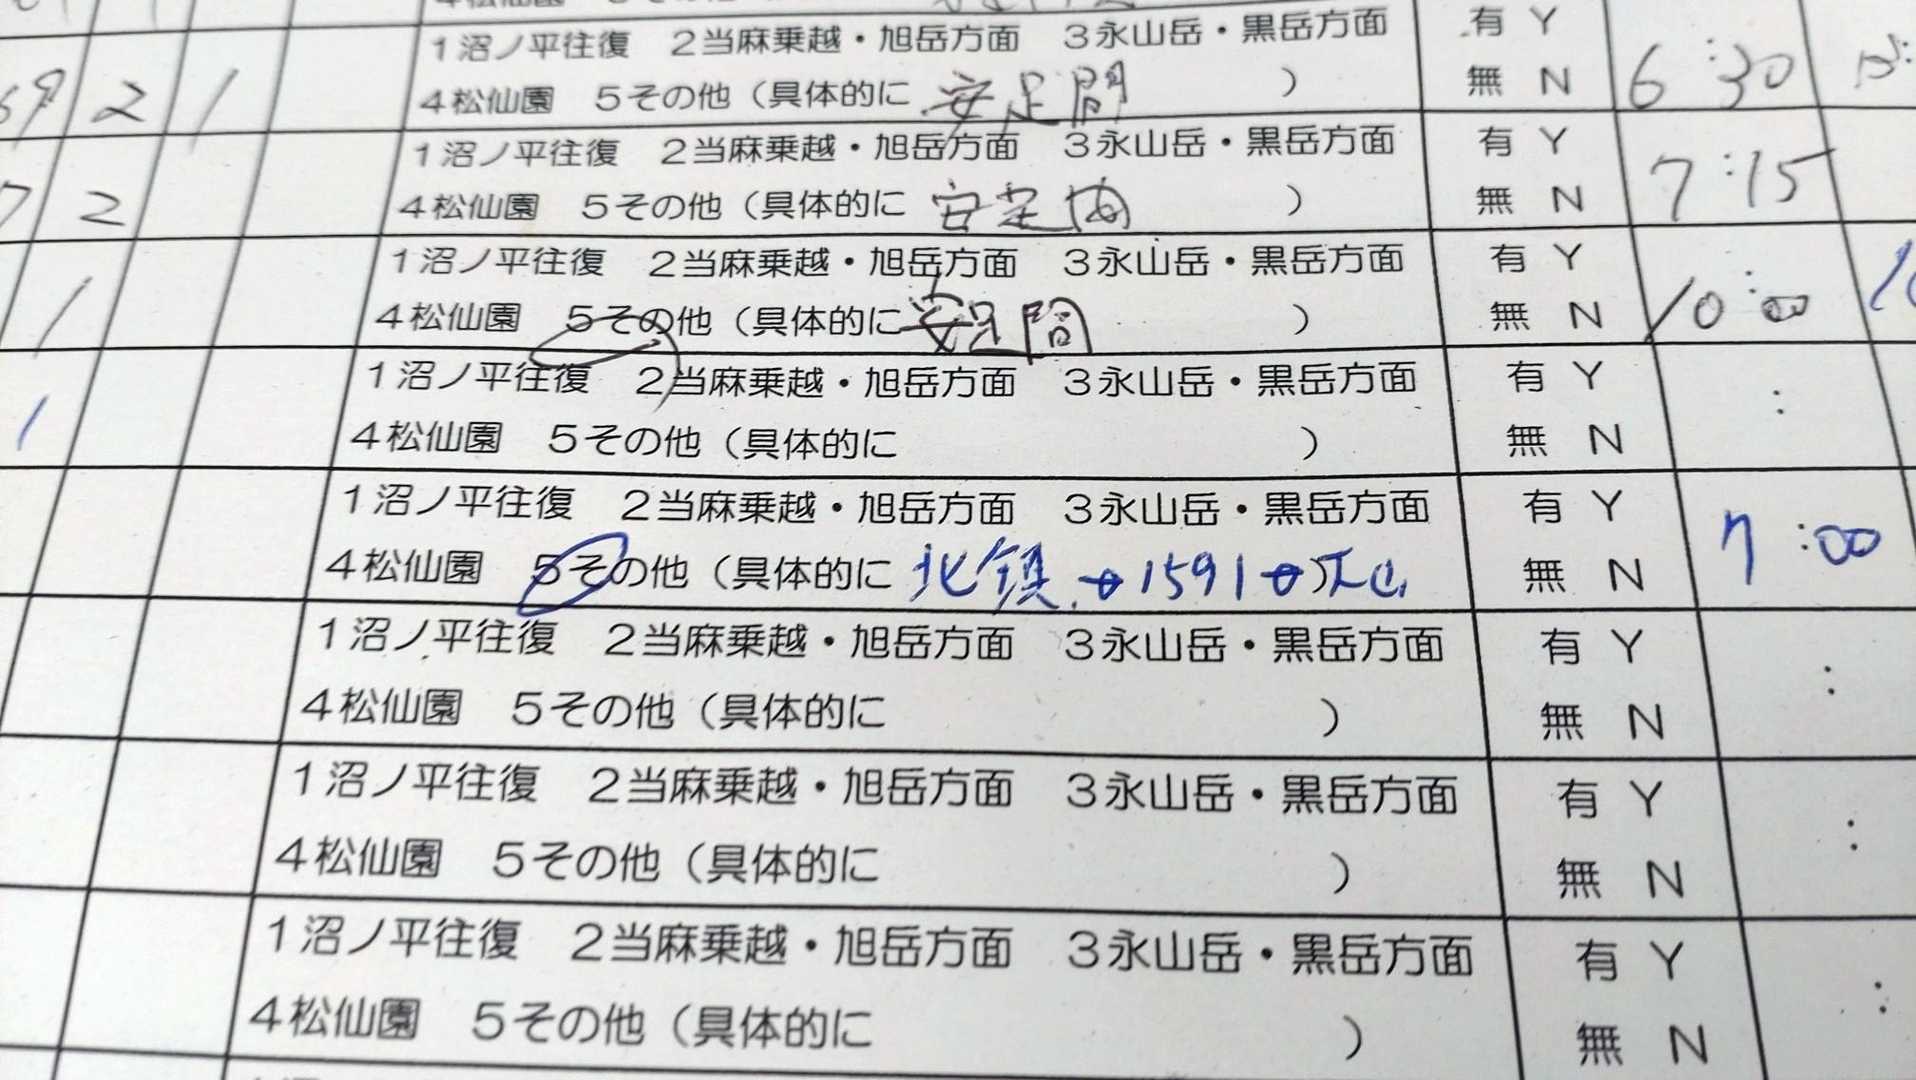 1沼ノ平往復 2当麻乗越・旭岳方面 3永山岳・黒岳方面 有 Y
2 1 4松仙園 5その他（具体的に 安足間 ） 無 N 6:30
1沼ノ平往復 2当麻乗越・旭岳方面 3永山岳・黒岳方面 有 Y
7 2 4松仙園 5その他（具体的に 安足间 ） 無 N 7:15
1沼ノ平往復 2当麻乗越・旭岳方面 3永山岳・黒岳方面 有 Y
1 4松仙園 5その他（具体的に 安足間 ） 無 N 10:00
1沼ノ平往復 2当麻乗越・旭岳方面 3永山岳・黒岳方面 有 Y :
1 4松仙園 5その他（具体的に ） 無 N
1沼ノ平往復 2当麻乗越・旭岳方面 3永山岳・黒岳方面 有 Y
4松仙園 5その他（具体的に 北鎮→1591→ ） 無 N 7:00
1沼ノ平往復 2当麻乗越・旭岳方面 3永山岳・黒岳方面 有 Y :
4松仙園 5その他（具体的に ） 無 N
1沼ノ平往復 2当麻乗越・旭岳方面 3永山岳・黒岳方面 有 Y :
4松仙園 5その他（具体的に ） 無 N
1沼ノ平往復 2当麻乗越・旭岳方面 3永山岳・黒岳方面 有 Y :
4松仙園 5その他（具体的に ） 無 N